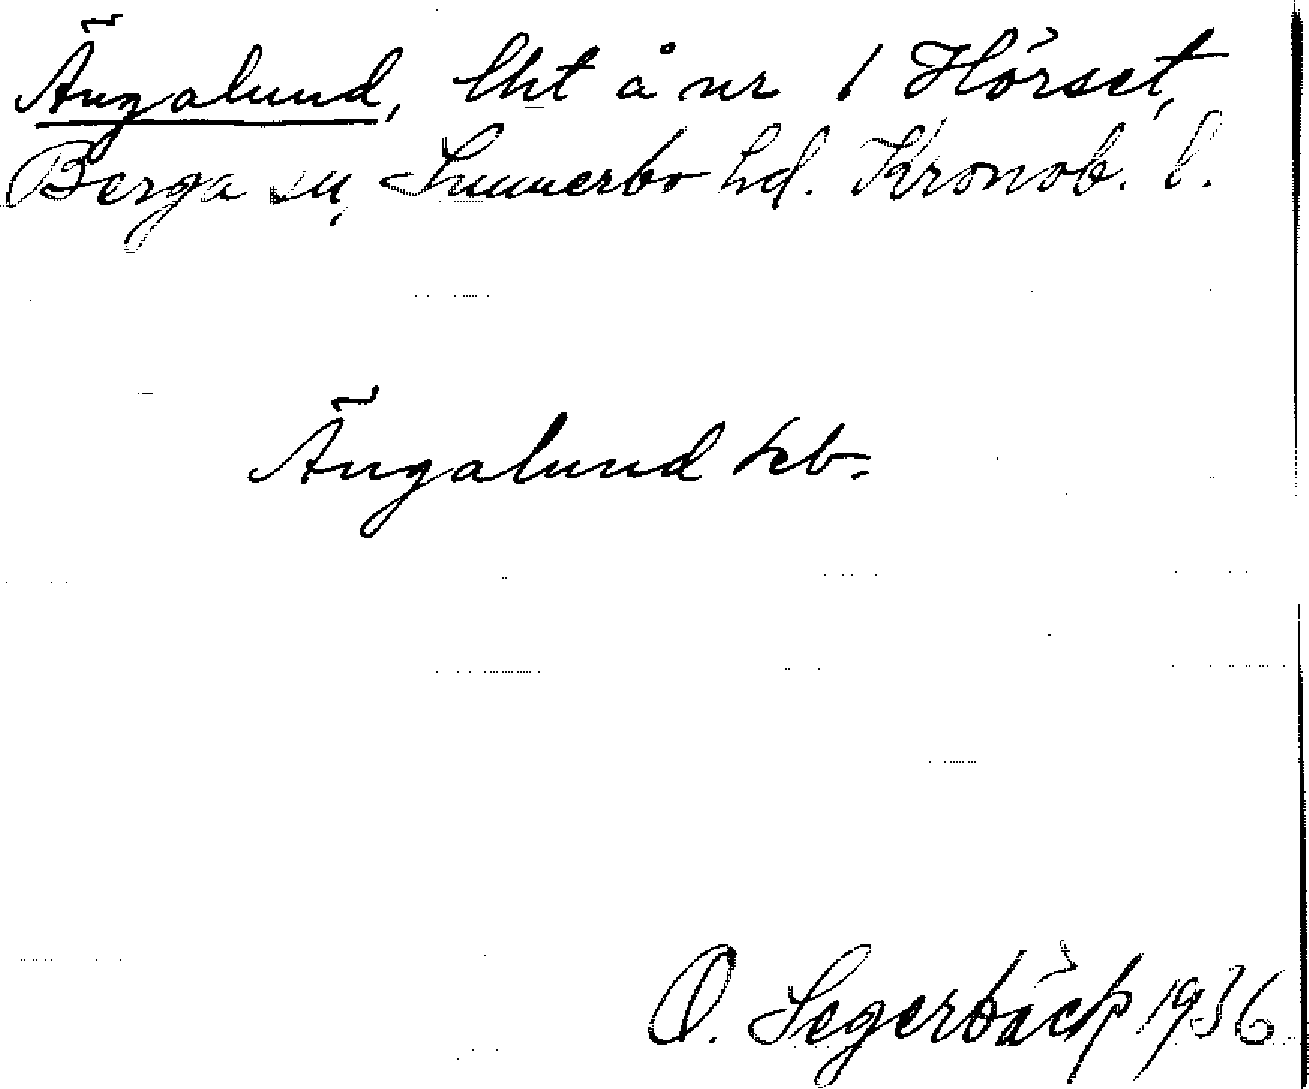 Ängalund, lht å nr 1 Hörset,
Berga sn, Sunnerbo hd. Kronob. l.
Ängalund keb.
O. Segerbäck 1936